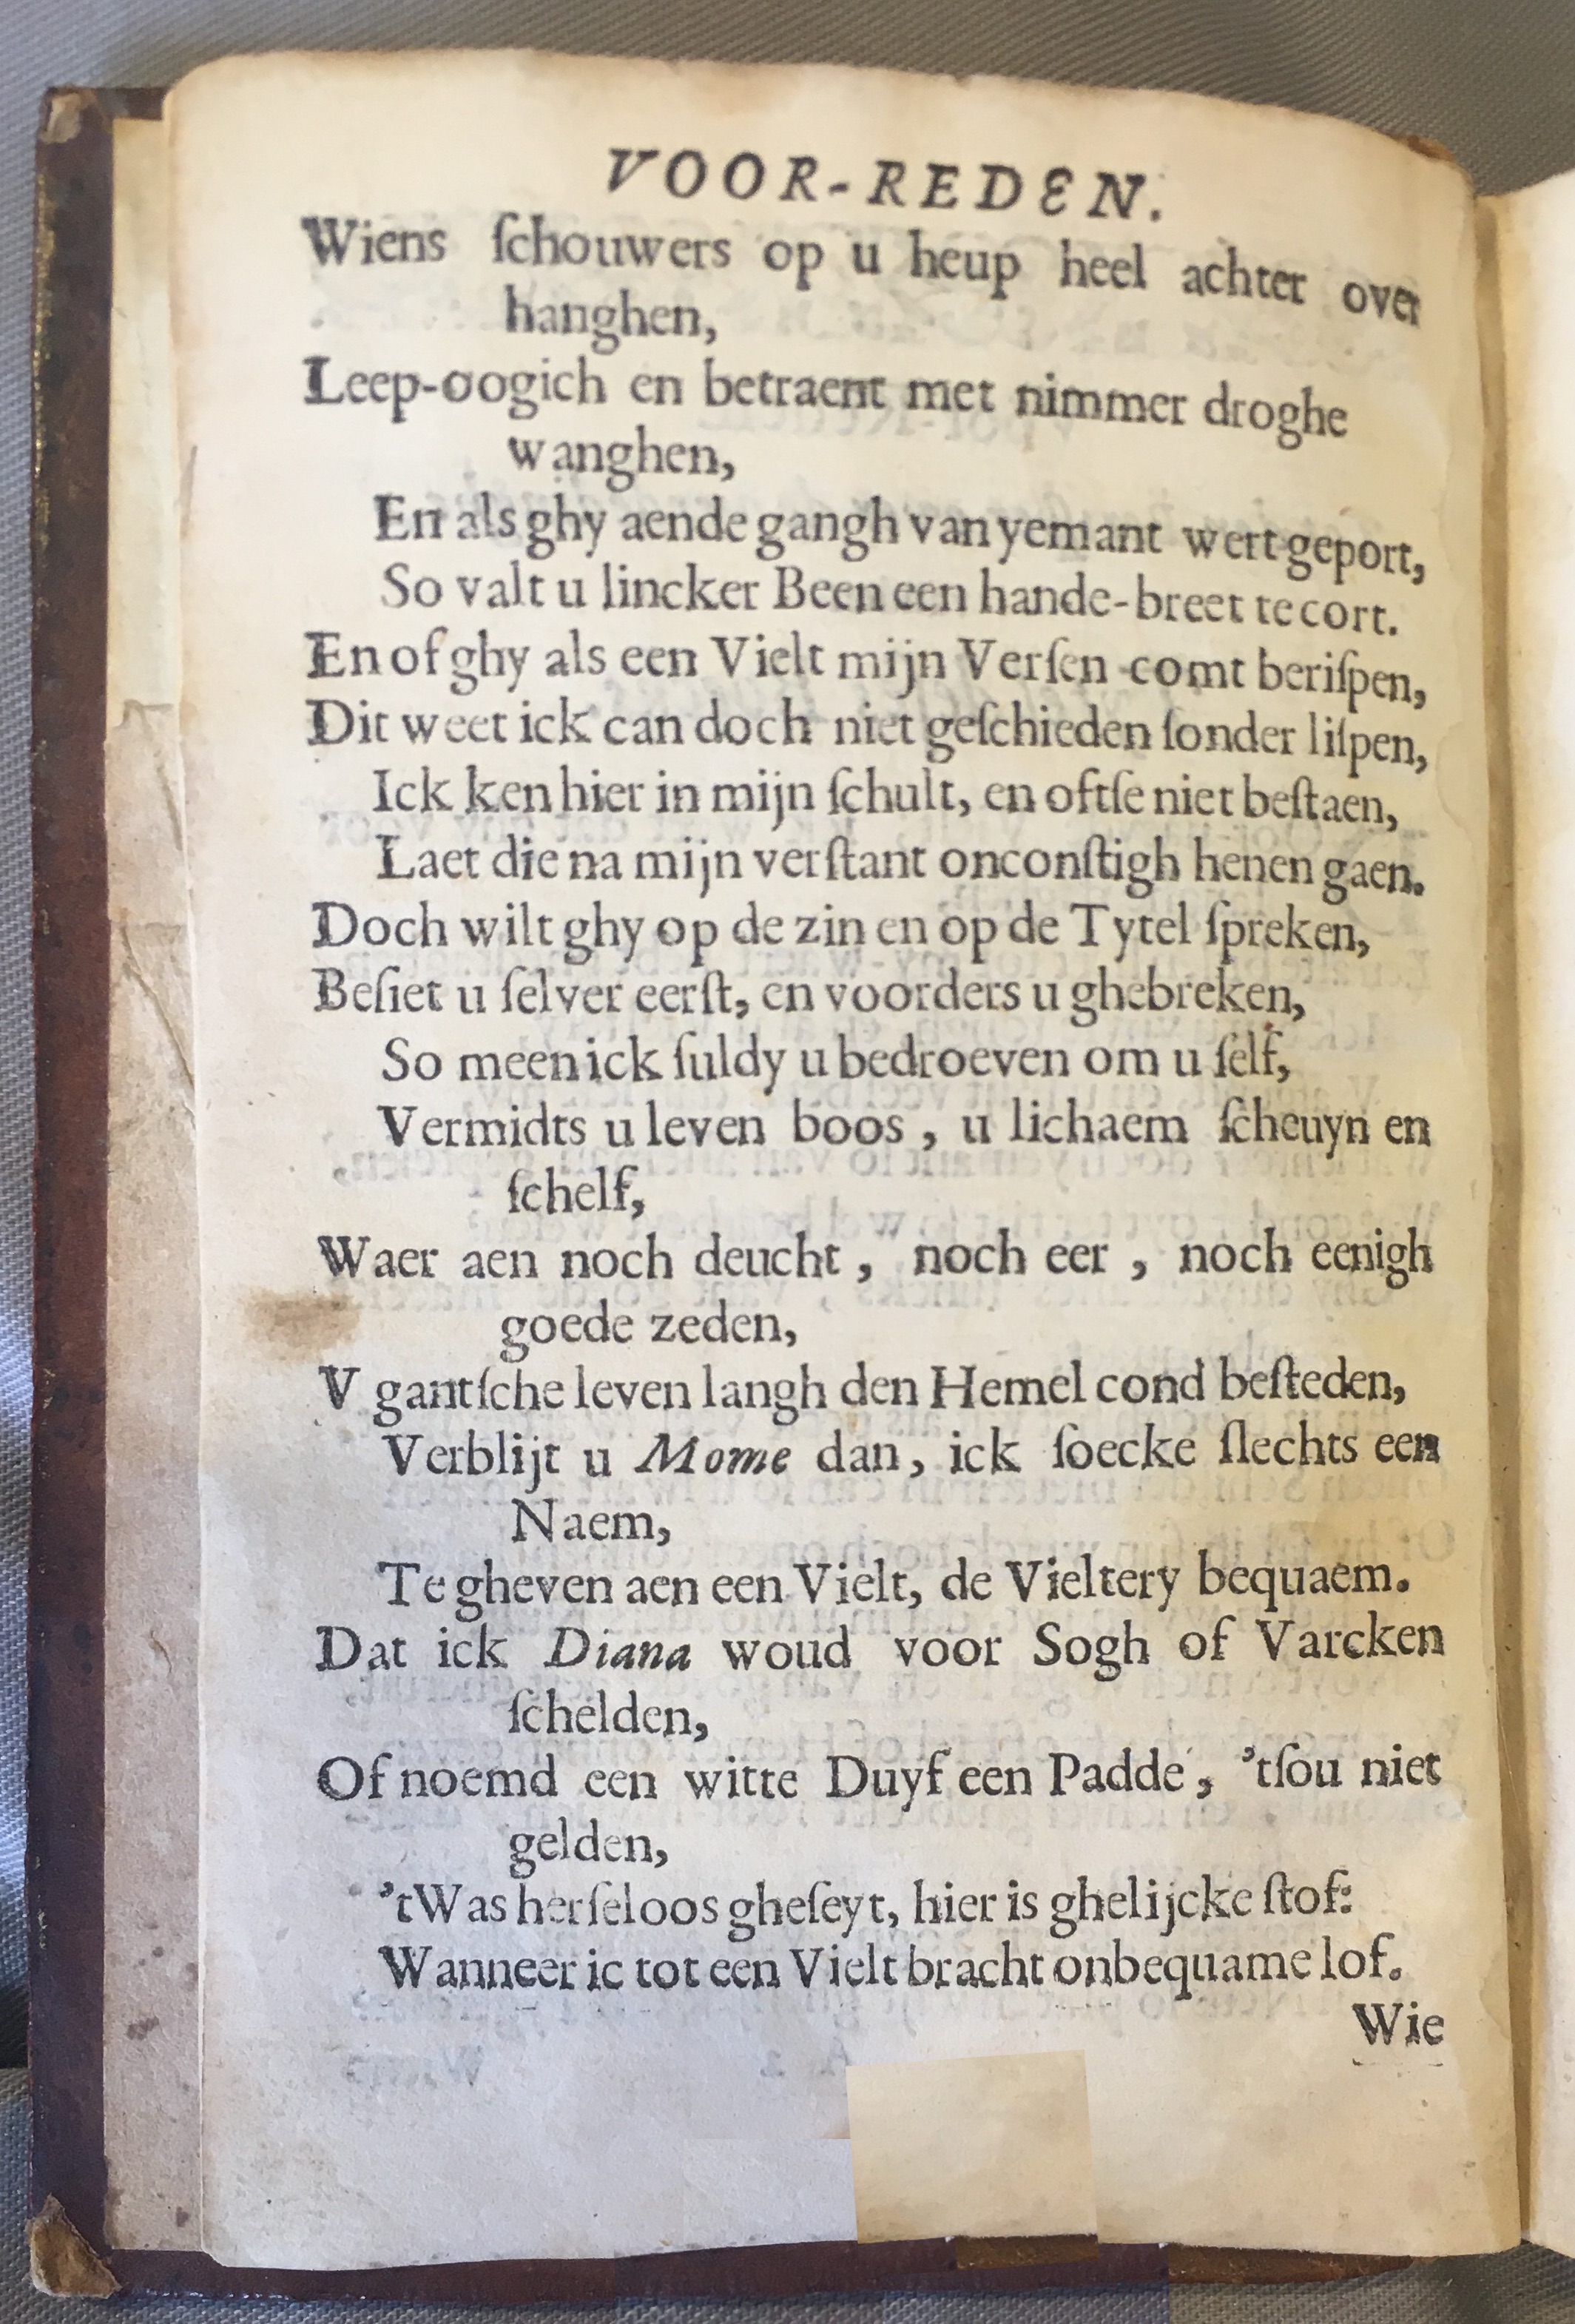 VOOR-REDEN.
Wiens ſchouwers op u heup heel achter over
hanghen,
Leep-oogich en betraent met nimmer droghe
wanghen,
En als ghy aende gangh van yemant wert geport,
So valt u lincker Been een hande-breet te cort.
En of ghy als een Vielt mijn Verſen comt beriſpen,
Dit weet ick can doch niet geſchieden ſonder liſpen,
Ick ken hier in mijn ſchult, en oftſe niet beſtaen,
Laet die na mijn verſtant onconſtigh henen gaen.
Doch wilt ghy op de zin en op de Tytel ſpreken,
Beſiet u ſelver eerſt, en voorders u ghebreken,
So meen ick ſuldy u bedroeven om u ſelf,
Vermidts u leven boos, u lichaem ſcheuyn en
ſchelf,
Waer aen noch deucht, noch eer, noch eenigh
goede zeden,
V gantſche leven langh den Hemel cond beſteden,
Verblijt u Mome dan, ick ſoecke ſlechts een
Naem,
Te gheven aen een Vielt, de Vieltery bequaem.
Dat ick Diana woud voor Sogh of Varcken
ſchelden,
Of noemd een witte Duyf een Padde, 'tſou niet
gelden,
'tWas herſeloos gheſeyt, hier is ghelijcke ſtof:
Wanneer ic tot een Vielt bracht onbequame lof.
Wie